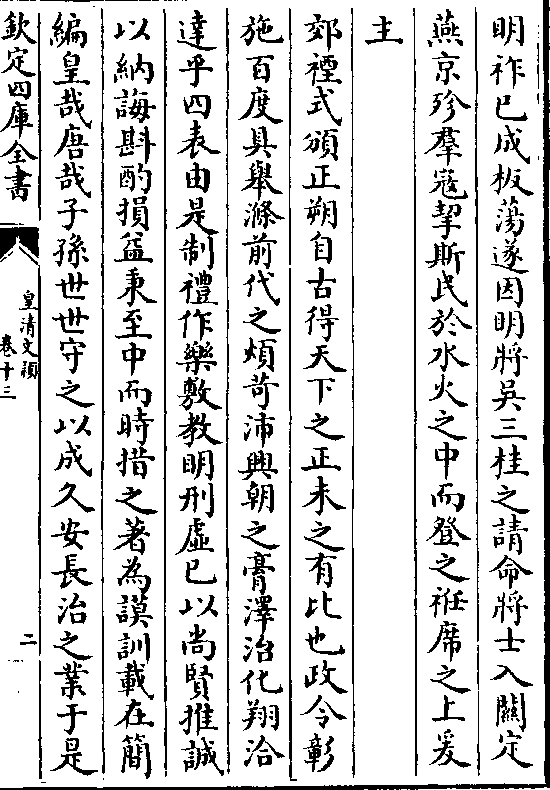 明祚已成板蕩遂因明將吳三桂之請命將士入關定
燕京殄羣寇挈斯民於水火之中而登之袵席之上爰
主
郊禋式頒正朔自古得天下之正未之有比也政令彰
施百度具舉滌前代之煩苛沛興朝之膏澤治化翔洽
達乎四表由是制禮作樂敷教明刑虛已以尚賢推誠
以納誨斟酌損益秉至中而時措之著為謨訓載在簡
編皇哉唐哉子孫世世守之以成久安長治之業于是
欽定四庫全書
皇清文穎
卷十三
二